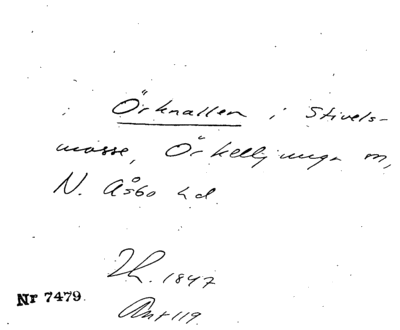 Örknallen i Stivels-
mosse, Örkelljunga m,
N. Åsbo hd.
Th. 1847
Nr 7479.
Ant 119